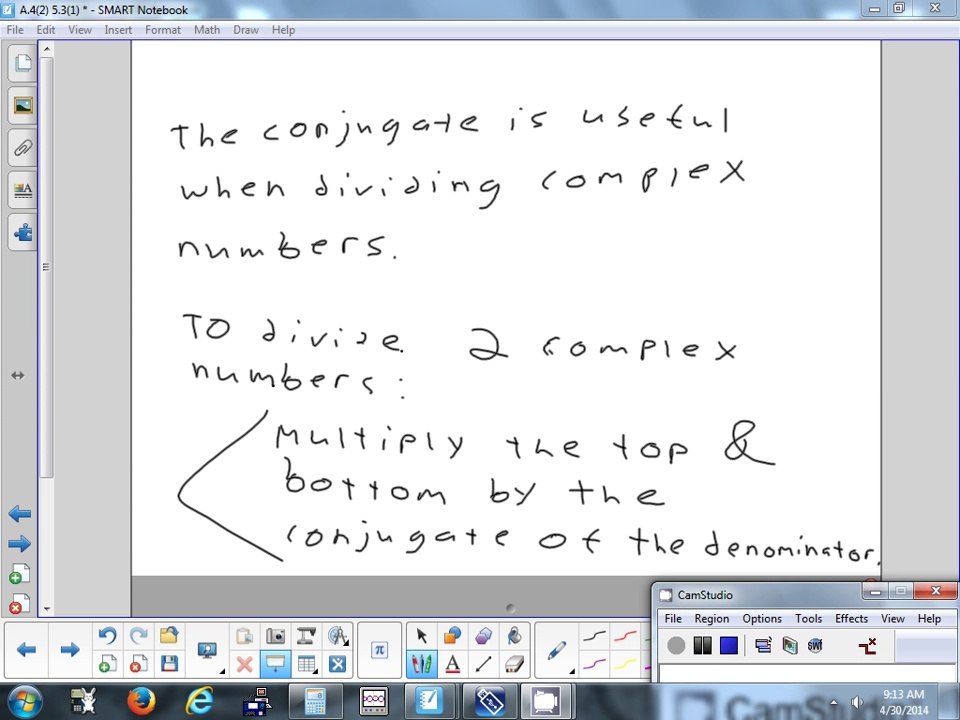 A.4(2) 5.3(1) * - SMART Notebook
File Edit View Insert Format Math Draw Help
The conjugate is useful
when dividing complex
numbers.
To divide 2 complex
numbers:
Multiply the top &
bottom by the
conjugate of the denominator.
CamStudio
File Region Options Tools Effects View Help
SWF
π
A
CamStu
9:13 AM
4/30/2014